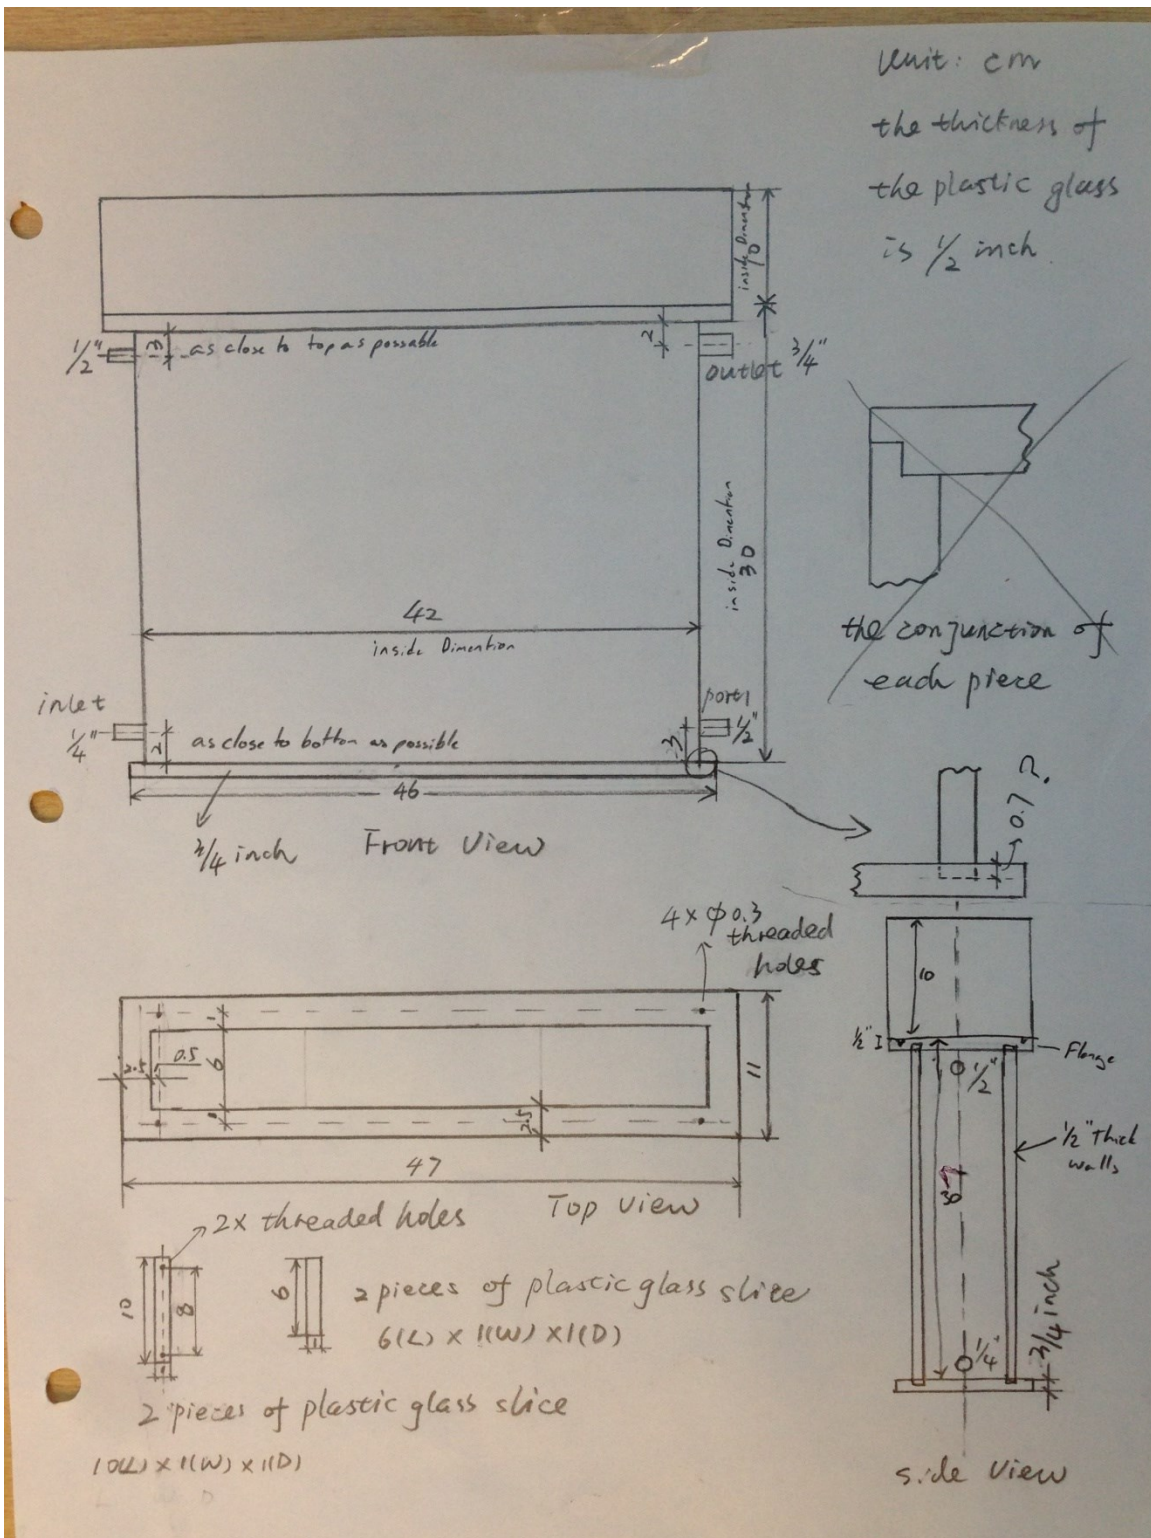 Unit: cm
the thickness of
the plastic glass
is 1/2 inch.
inside Dimention
10
1/2"
3
as close to top as possable
2
outlet 3/4"
inside Dimention
30
42
inside Dimention
the conjunction of
each piece
inlet
1/4"
2
as close to botton as possible
port1
1/2"
3
46
3/4 inch
Front View
0.7 ?
4 x φ0.3
threaded
holes
10
1/2"
Flange
1/2"
1
6
1
2.5
0.5
2.5
11
47
Top View
1/2" thick
walls
30
1/4"
3/4 inch
side View
2x threaded holes
10
8
6
1
2 pieces of plastic glass slice
6(L) x 1(W) x 1(D)
2 pieces of plastic glass slice
10(L) x 1(W) x 1(D)
L W D